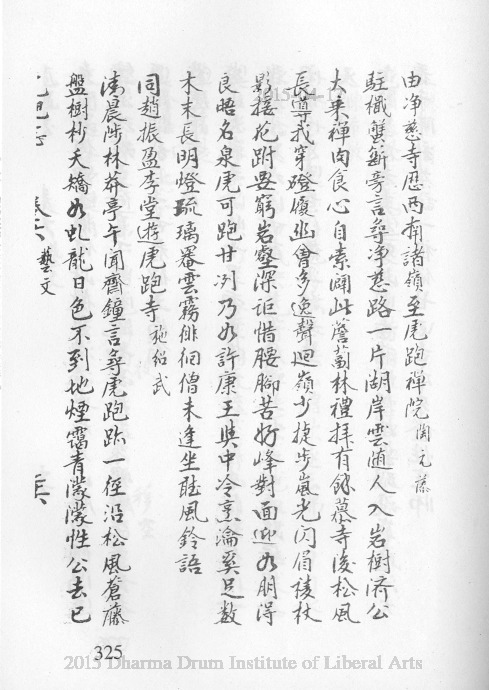 由净慈寺歷西南諸嶺至虎跑禪院 陶元藻
駐檝蠒新旁言尋净慈路一片湖岸雲随人入岩樹济公
大乘禪肉食心自素闢此薝蔔林禮拜有餘慕寺後松風
長導我穿磴履幽會多逸聲迴嶺少捷步嵐光閃眉稜杖
影接花跗要窮岩壑深詎惜腰腳苦好峰對面迎如朋得
良晤名泉虎可跑甘冽乃如許康王與中冷烹瀹奚足数
木末長明燈琉璃罨雲霧徘徊僧未逢坐聽風鈴語
同趙振盈李堂遊虎跑寺 施紹武
清晨涉林莽亭午聞齋鐘言尋虎跑跡一徑沿松風蒼藤
盤樹杪夭矯如虬龍日色不到地煙靄青濛濛性公去已
卷六 藝文
325
2015 Dharma Drum Institute of Liberal Arts